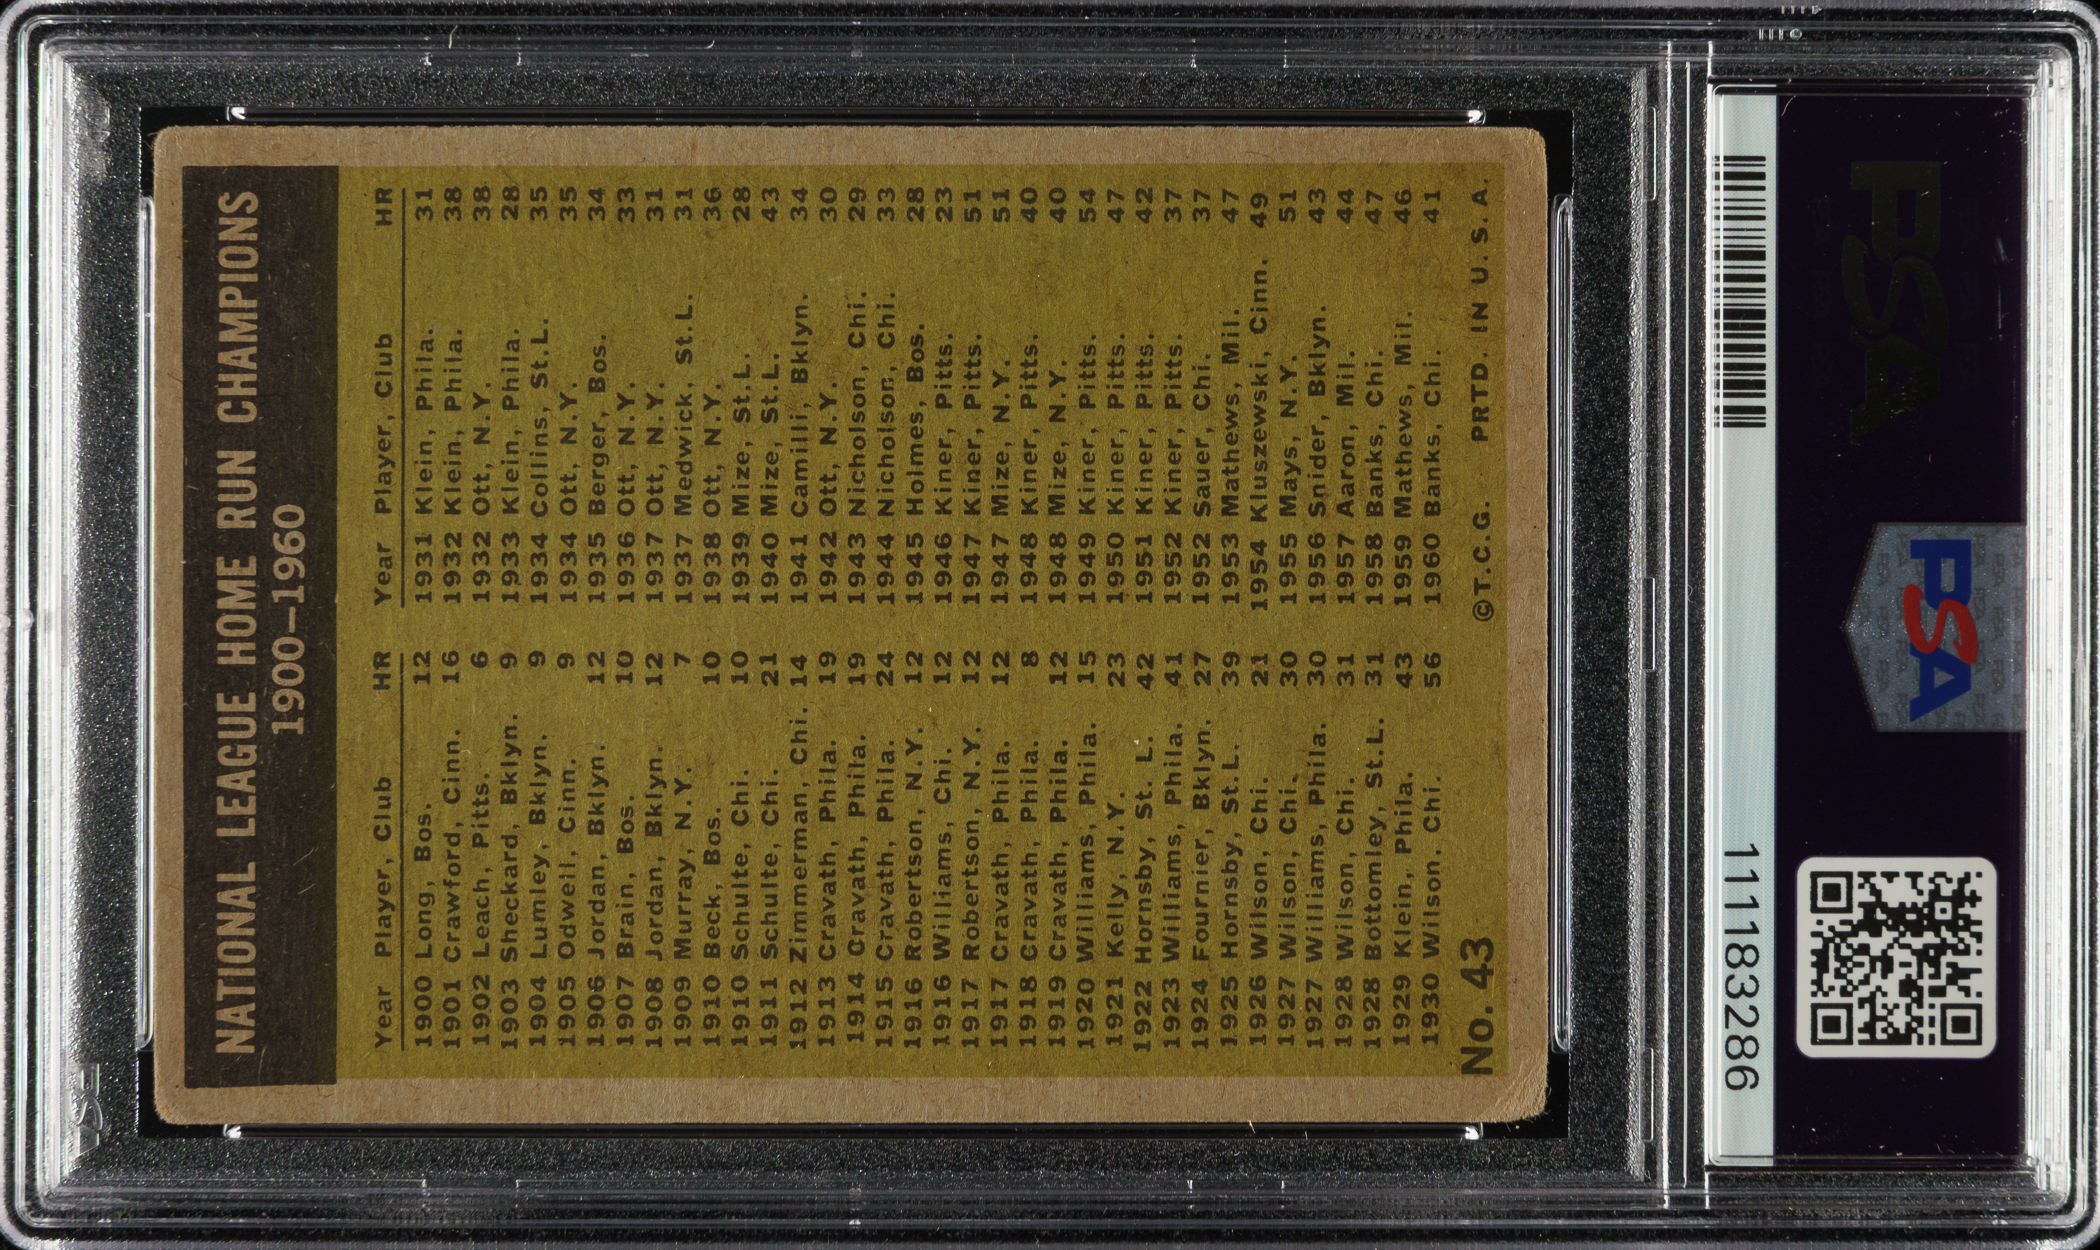 NATIONAL LEAGUE HOME RUN CHAMPIONS
1900–1960
Year Player, Club HR
1900 Long, Bos. 12
1901 Crawford, Cinn. 16
1902 Leach, Pitts. 6
1903 Sheckard, Bklyn. 9
1904 Lumley, Bklyn. 9
1905 Odwell, Cinn. 9
1906 Jordan, Bklyn. 12
1907 Brain, Bos. 10
1908 Jordan, Bklyn. 12
1909 Murray, N.Y. 7
1910 Beck, Bos. 10
1910 Schulte, Chi. 10
1911 Schulte, Chi. 21
1912 Zimmerman, Chi. 14
1913 Cravath, Phila. 19
1914 Cravath, Phila. 19
1915 Cravath, Phila. 24
1916 Robertson, N.Y. 12
1916 Williams, Chi. 12
1917 Robertson, N.Y. 12
1917 Cravath, Phila. 12
1918 Cravath, Phila. 8
1919 Cravath, Phila. 12
1920 Williams, Phila. 15
1921 Kelly, N.Y. 23
1922 Hornsby, St. L. 42
1923 Williams, Phila. 41
1924 Fournier, Bklyn. 27
1925 Hornsby, St.L. 39
1926 Wilson, Chi. 21
1927 Wilson, Chi. 30
1927 Williams, Phila. 30
1928 Wilson, Chi. 31
1928 Bottomley, St.L. 31
1929 Klein, Phila. 43
1930 Wilson, Chi. 56
Year Player, Club HR
1931 Klein, Phila. 31
1932 Klein, Phila. 38
1932 Ott, N.Y. 38
1933 Klein, Phila. 28
1934 Collins, St.L. 35
1934 Ott, N.Y. 35
1935 Berger, Bos. 34
1936 Ott, N.Y. 33
1937 Ott, N.Y. 31
1937 Medwick, St.L. 31
1938 Ott, N.Y. 36
1939 Mize, St.L. 28
1940 Mize, St.L. 43
1941 Camilli, Bklyn. 34
1942 Ott, N.Y. 30
1943 Nicholson, Chi. 29
1944 Nicholson, Chi. 33
1945 Holmes, Bos. 28
1946 Kiner, Pitts. 23
1947 Kiner, Pitts. 51
1947 Mize, N.Y. 51
1948 Kiner, Pitts. 40
1948 Mize, N.Y. 40
1949 Kiner, Pitts. 54
1950 Kiner, Pitts. 47
1951 Kiner, Pitts. 42
1952 Kiner, Pitts. 37
1952 Sauer, Chi. 37
1953 Mathews, Mil. 47
1954 Kluszewski, Cinn. 49
1955 Mays, N.Y. 51
1956 Snider, Bklyn. 43
1957 Aaron, Mil. 44
1958 Banks, Chi. 47
1959 Mathews, Mil. 46
1960 Banks, Chi. 41
No. 43
©T.C.G. PRTD. IN U.S.A.
PSA
PSA
111183286